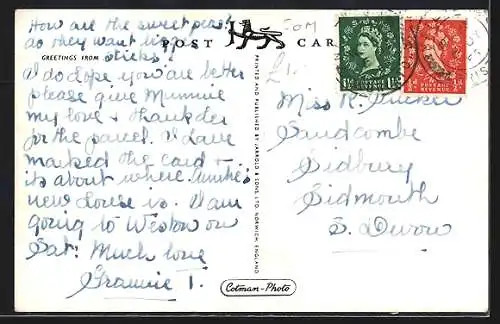 How are the sweet peas?
do they want big
sticks?
POST CARD
GREETINGS FROM
I do hope you are better
please give Mummie
my love & thank her
for the parcel. I have
marked the card &
its about where Auntie's
new house is. I am
going to Weston on
Sat: Much love
Grannie T.
PRINTED AND PUBLISHED BY JARROLD & SONS, LTD. NORWICH, ENGLAND
Cotman-Photo
Miss R. Tucker
Sandcombe
Sidbury
Sidmouth
S. Devon
POSTAGE
REVENUE
POSTAGE
REVENUE